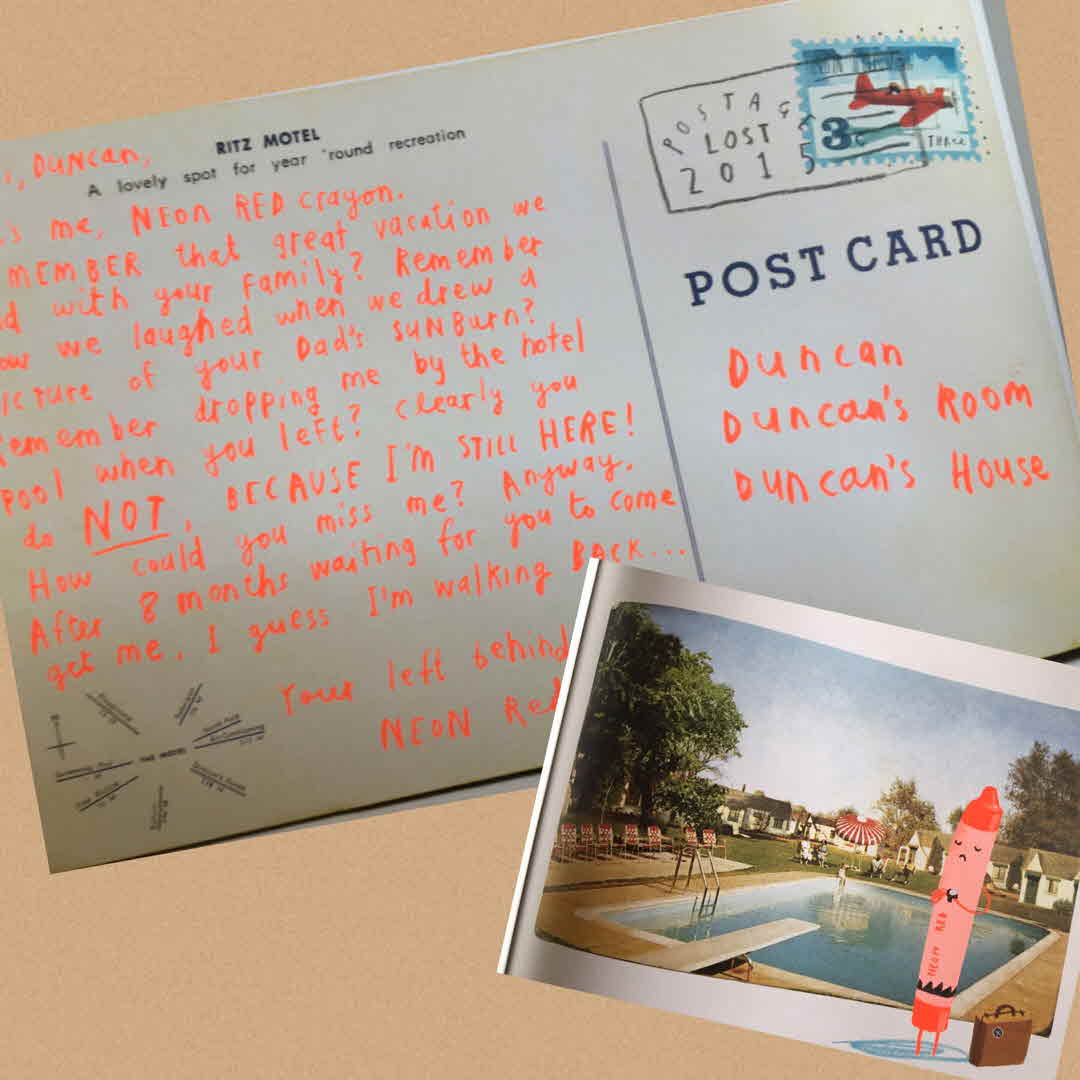 RITZ MOTEL
A lovely spot for year 'round recreation
, DUNCAN,
s me, NEON RED crayon.
MEMBER that great vacation we
d with your family? Remember
ow we laughed when we drew a
icture of your Dad's SUNBurn?
emember dropping me by the hotel
pool when you left? Clearly you
do NOT, BECAUSE I'M STILL HERE!
How could you miss me? Anyway.
After 8 months waiting for you to come
get me, I guess I'm walking BACK...
Your left behind
NEON Red
THE MOTEL
POSTAGE
LOST
2015
3c
THREE
POST CARD
Duncan
Duncan's Room
Duncan's House
NEON RED